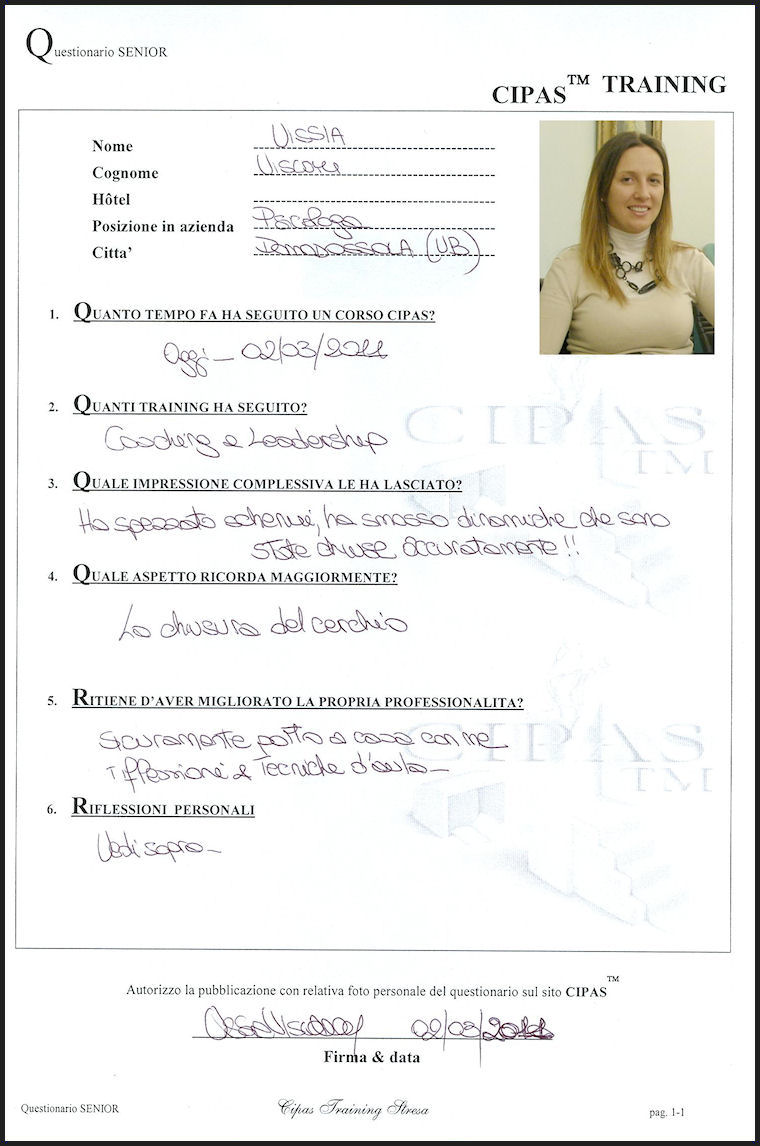 Questionario SENIOR
CIPAS™ TRAINING
Nome VISSIA
Cognome
Hôtel
Posizione in azienda Psicologa
Citta' DOMODOSSOLA (VB)
1. QUANTO TEMPO FA HA SEGUITO UN CORSO CIPAS?
Oggi - 02/03/2011
2. QUANTI TRAINING HA SEGUITO?
Coaching e Leadership
3. QUALE IMPRESSIONE COMPLESSIVA LE HA LASCIATO?
Ha spezzato schemi, ha smosso dinamiche che sono
state chiuse accuratamente!!
4. QUALE ASPETTO RICORDA MAGGIORMENTE?
La chiusura del cerchio
5. RITIENE D'AVER MIGLIORATO LA PROPRIA PROFESSIONALITA?
Sicuramente porto a casa con me
riflessioni e Tecniche d'aula -
6. RIFLESSIONI PERSONALI
Vedi sopra -
CIPAS
TM
CIPAS
TM
Autorizzo la pubblicazione con relativa foto personale del questionario sul sito CIPAS™
02/03/2011
Firma & data
Questionario SENIOR
Cipas Training Stresa
pag. 1-1